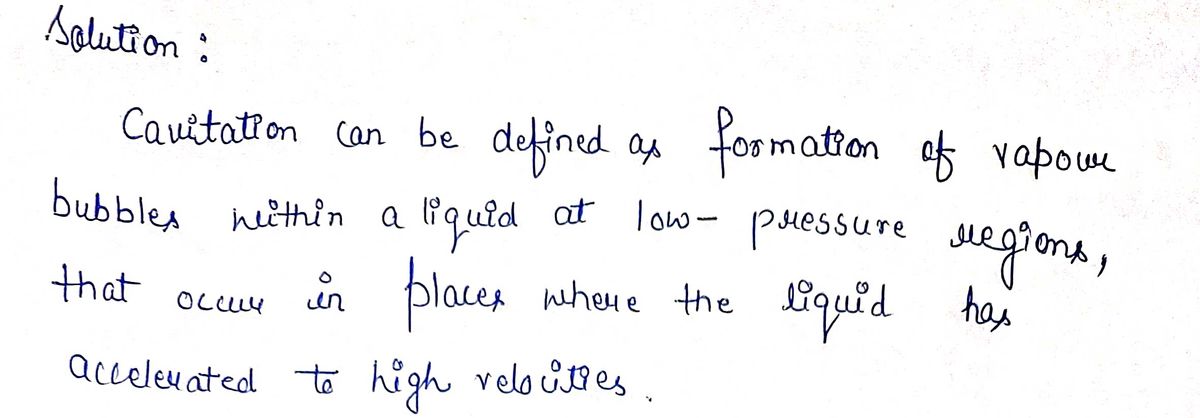 Solution :
Cavitation can be defined as formation of vapour
bubbles within a liquid at low- pressure regions,
that occur in places where the liquid has
accelerated to high velocities.